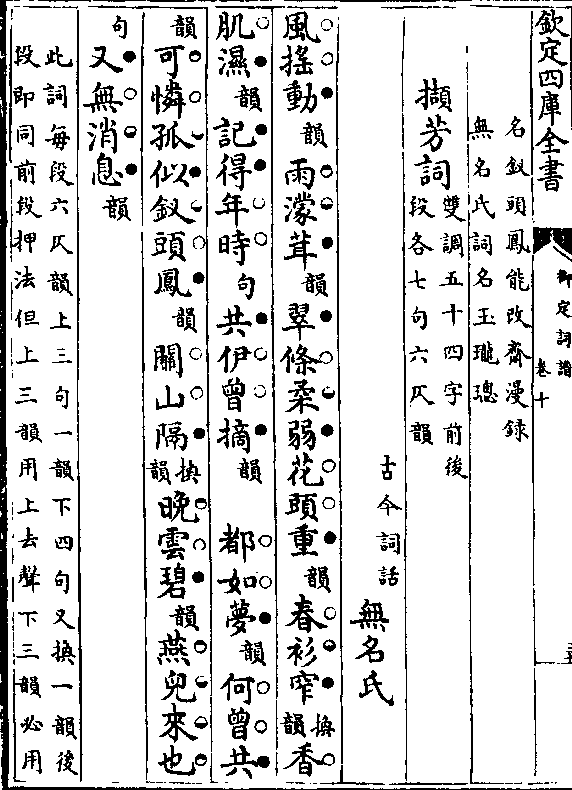 欽定四庫全書
御定詞譜
卷十
名釵頭鳳能改齋漫録
無名氏詞名玉瓏璁
擷芳詞雙調五十四字前後
段各七句六仄韻
古今詞話
無名氏
風揺動韻雨濛茸韻翠條柔弱花頭重韻春衫窄換韻香
肌濕韻記得年時句共伊曾摘韻都如夢韻何曾共
韻可憐孤似釵頭鳳韻關山隔換韻晚雲碧韻燕兒來也
句又無消息韻
此詞每段六仄韻上三句一韻下四句又換一韻後
段即同前段押法但上三韻用上去聲下三韻必用